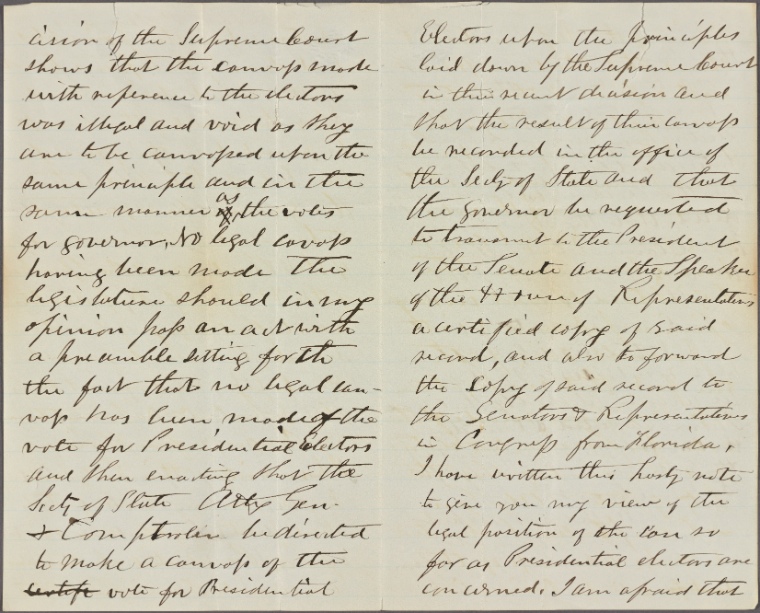 cision of the Supreme Court
shows that the canvass made
with reference to the electors
was illegal and void as they
are to be canvassed upon the
same principle and in the
same manner as the votes
for governor. No legal cavass
having been made the
legislature should in my
opinion pass an act with
a preamble setting forth
the fact that no legal can-
vass has been made of the
vote for Presidential Electors
and then enacting that the
Secty of State Atty Gen.
& Comptroler be directed
to make a canvass of the
vote for Presidential
Electors upon the principles
laid down by the Supreme Court
in their recent decision and
that the result of their canvass
be recorded in the office of
the Secty of State and that
the governor be requested
to transmit to the President
of the Senate and the Speaker
of the House of Representatives
a certified copy of said
record, and also to forward
the copy of said record to
the Senators & Representatives
in Congress from Florida,
I have written this hasty note
to give you my view of the
legal position of the case so
far as Presidential electors are
concerned. I am afraid that